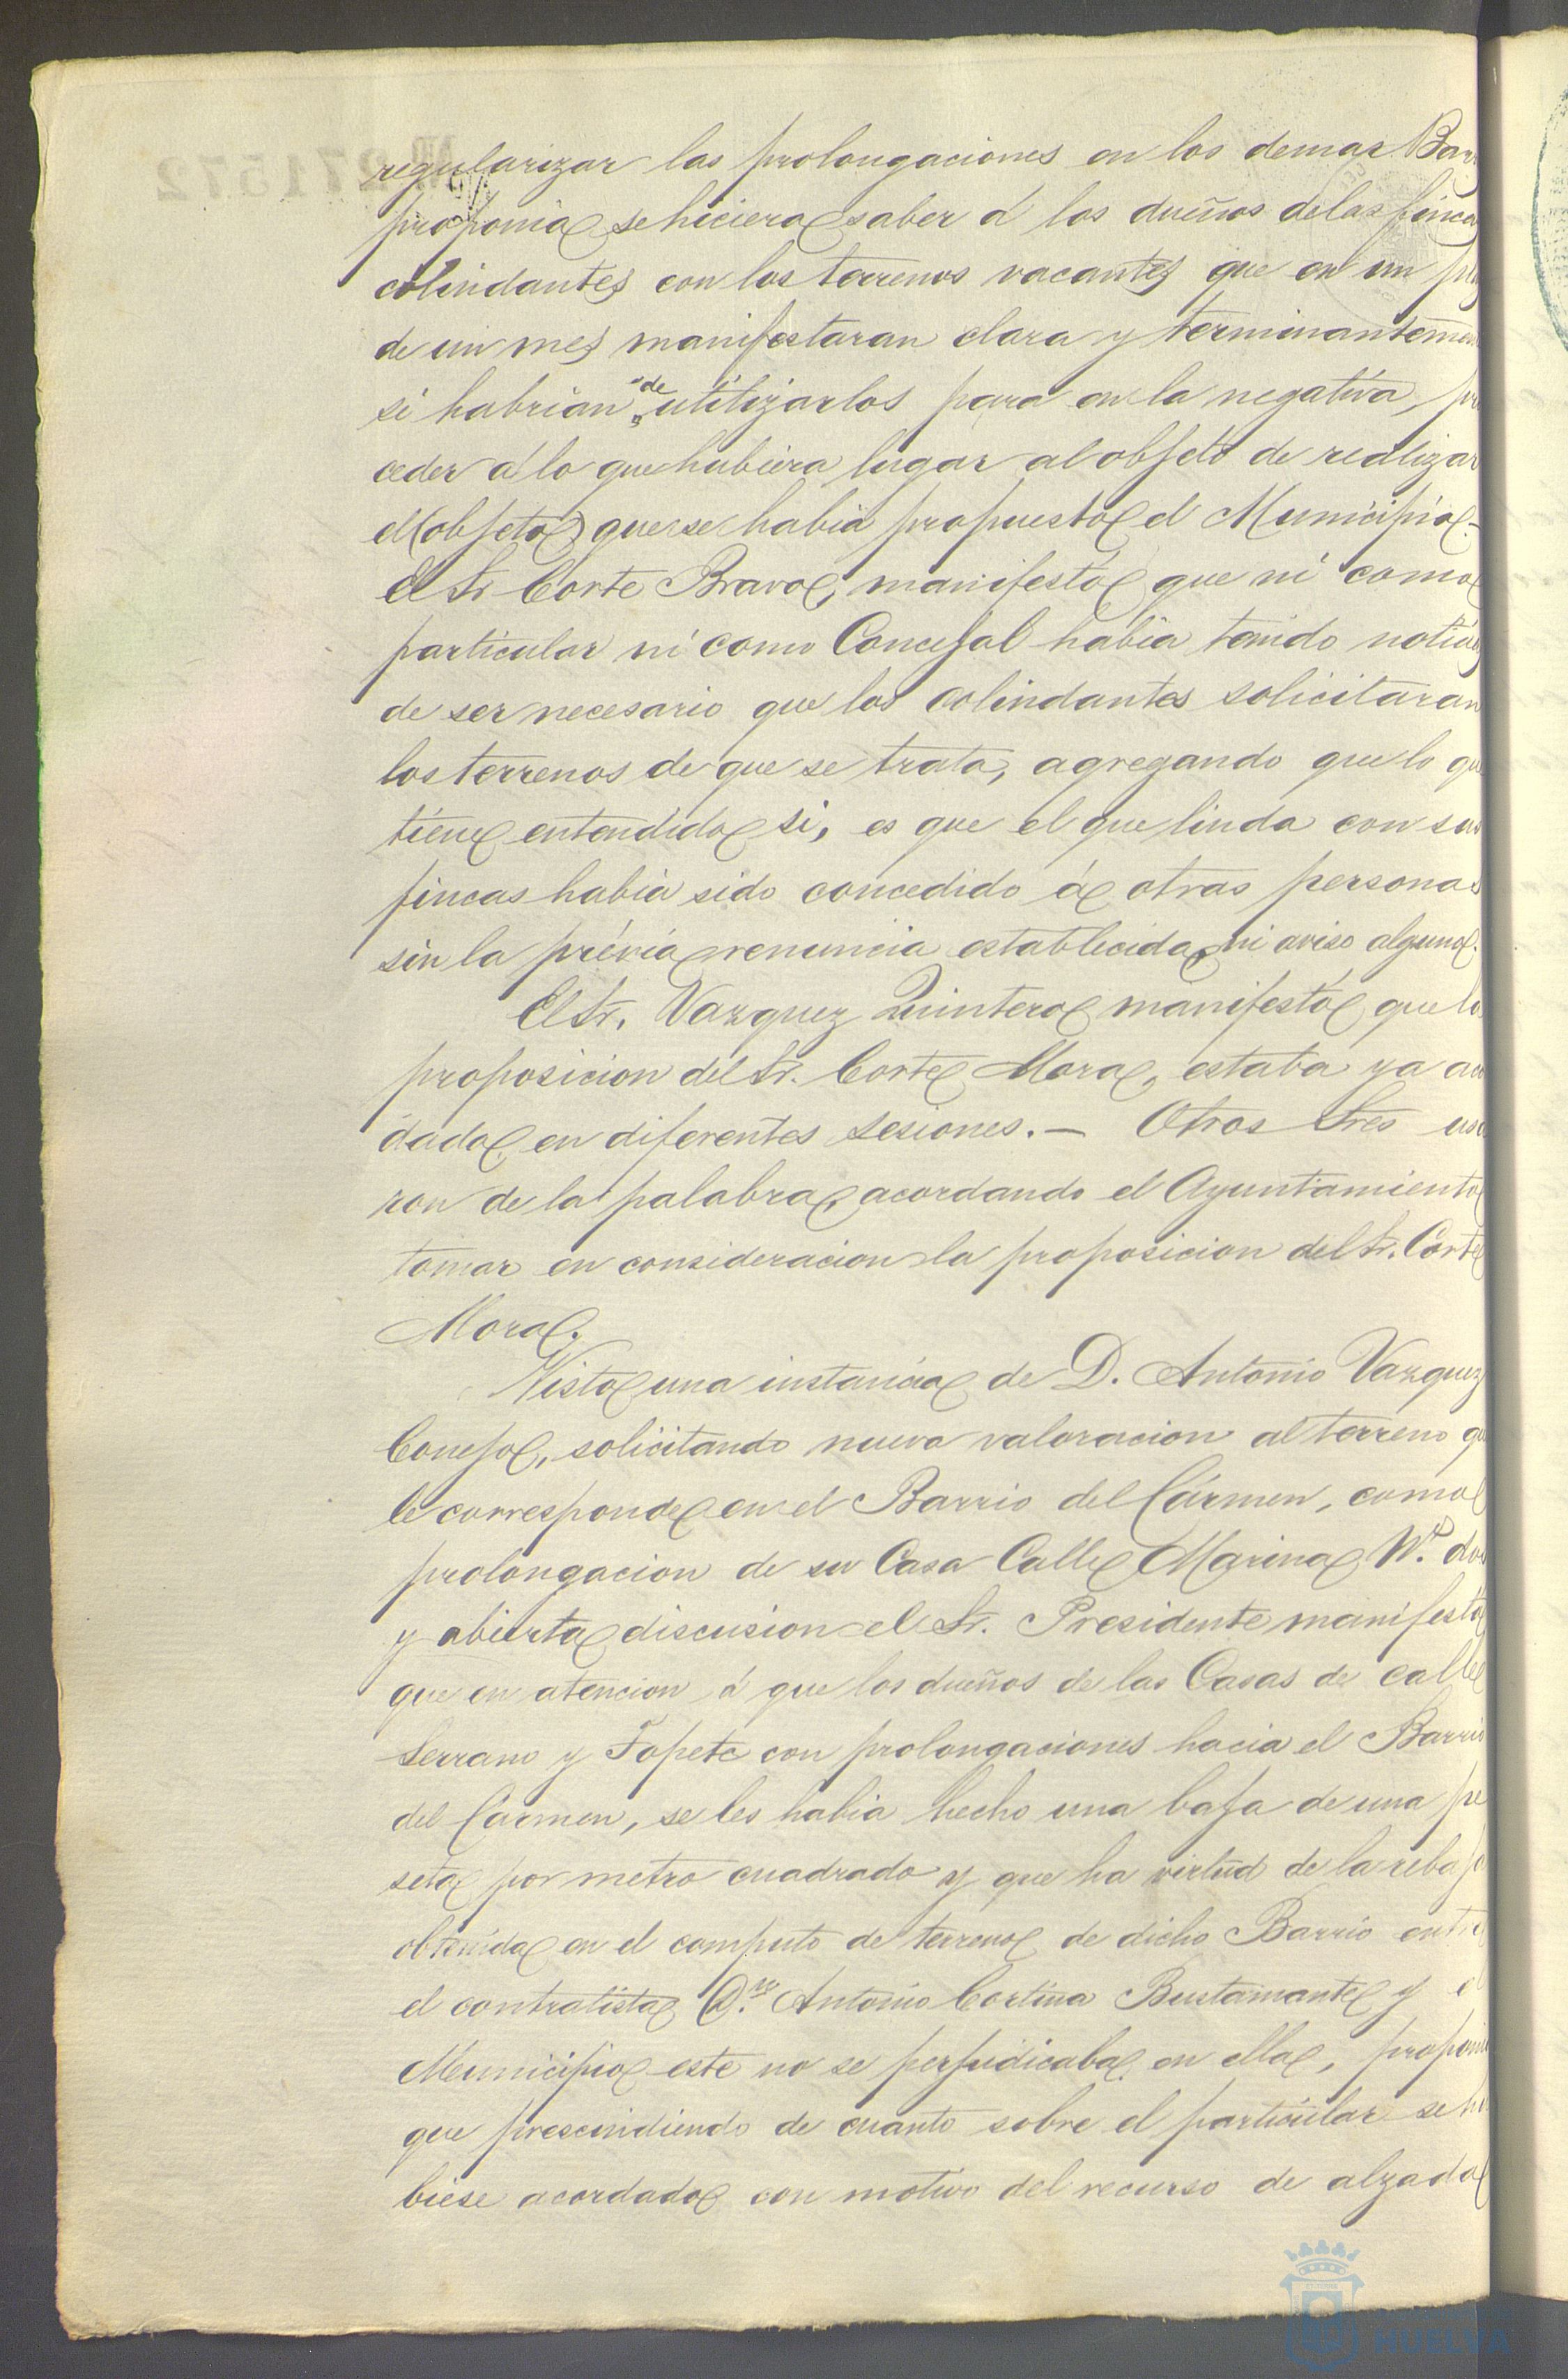 regularizar las prolongaciones en los demas Barr
proponia se hiciera saber á los dueños de las finca
colindantes con los terrenos vacantes que en un pla
de un mes manifestaran clara y terminantemen
si habrian "de" utilizarlos para en la negativa, pro
ceder a lo que hubiera lugar al objeto de realizar
el (objeto) que se habia propuesto el Municipio.-
El Sr Corte Bravo, manifestó que ni como
particular ni como Concejal habia tenido noticias
de ser necesario que los colindantes solicitaran
los terrenos de que se trata, agregando que lo que
tiene entendido si, es que el que linda con sus
fincas habia sido concedido á otras personas
sin la prévia renuncia establecida, ni aviso alguno.
El Sr. Vazquez Quintero manifestó que la
proposicion del Sr. Corte Mora, estaba ya acor
dada en diferentes sesiones. — Otros Sres usa
ron de la palabra, acordando el Ayuntamiento
tomar en consideracion la proposicion del Sr. Corte
Mora.
Vista una instancia de D. Antonio Vazquez
Conejo, solicitando nueva valoracion al terreno que
le corresponde en el Barrio del Cármen, como
prolongacion de su Casa Calle Marina Nº. dos
y abierta discusion el Sr. Presidente manifestó
que en atencion á que los dueños de las Casas de calle
Serrano y Topete con prolongaciones hacia el Barrio
del Cármen, se les habia hecho una baja de una pe
seta por metro cuadrado y que ha virtud de la rebaja
obtenida en el computo de terreno de dicho Barrio entre
el contratista D.n Antonio Cortina Bustamante y el
Municipio este no se perjudicaba en ella, proponia
que prescindiendo de cuanto sobre el particular se hu
biese acordado con motivo del recurso de alzada
271572
HUELVA